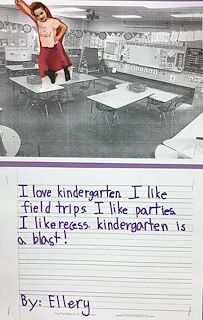 I love kindergarten. I like
field trips. I like parties.
I like recess. kindergarten is
a blast!
By: Ellery